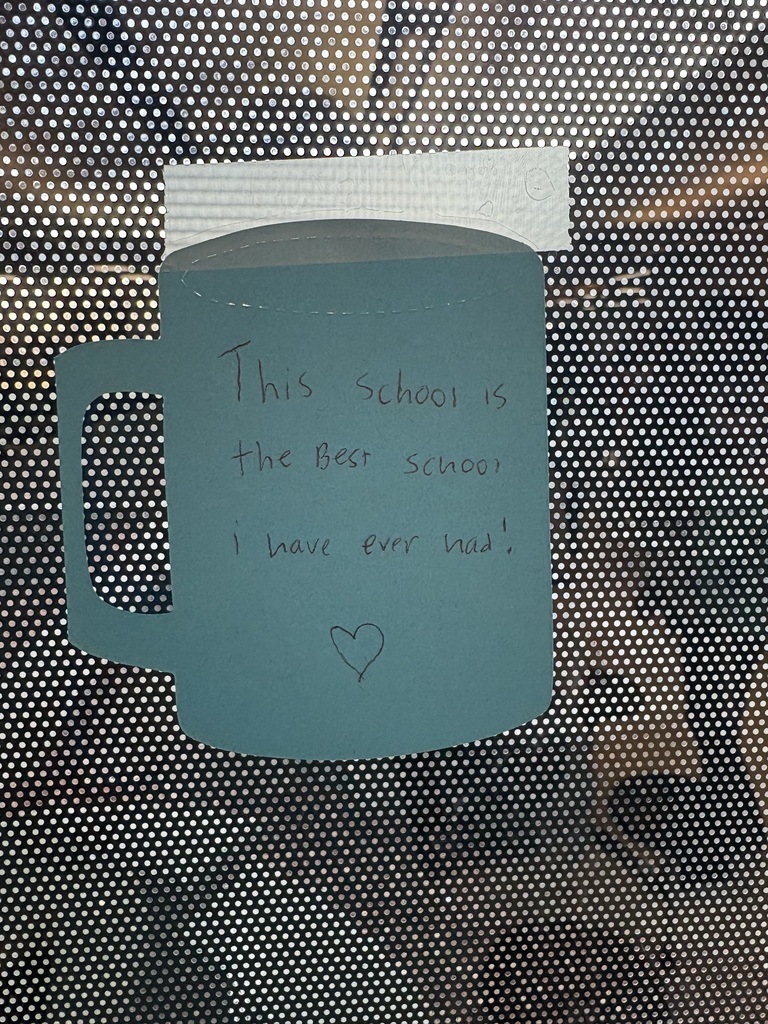 This school is
the Best school
i have ever had!